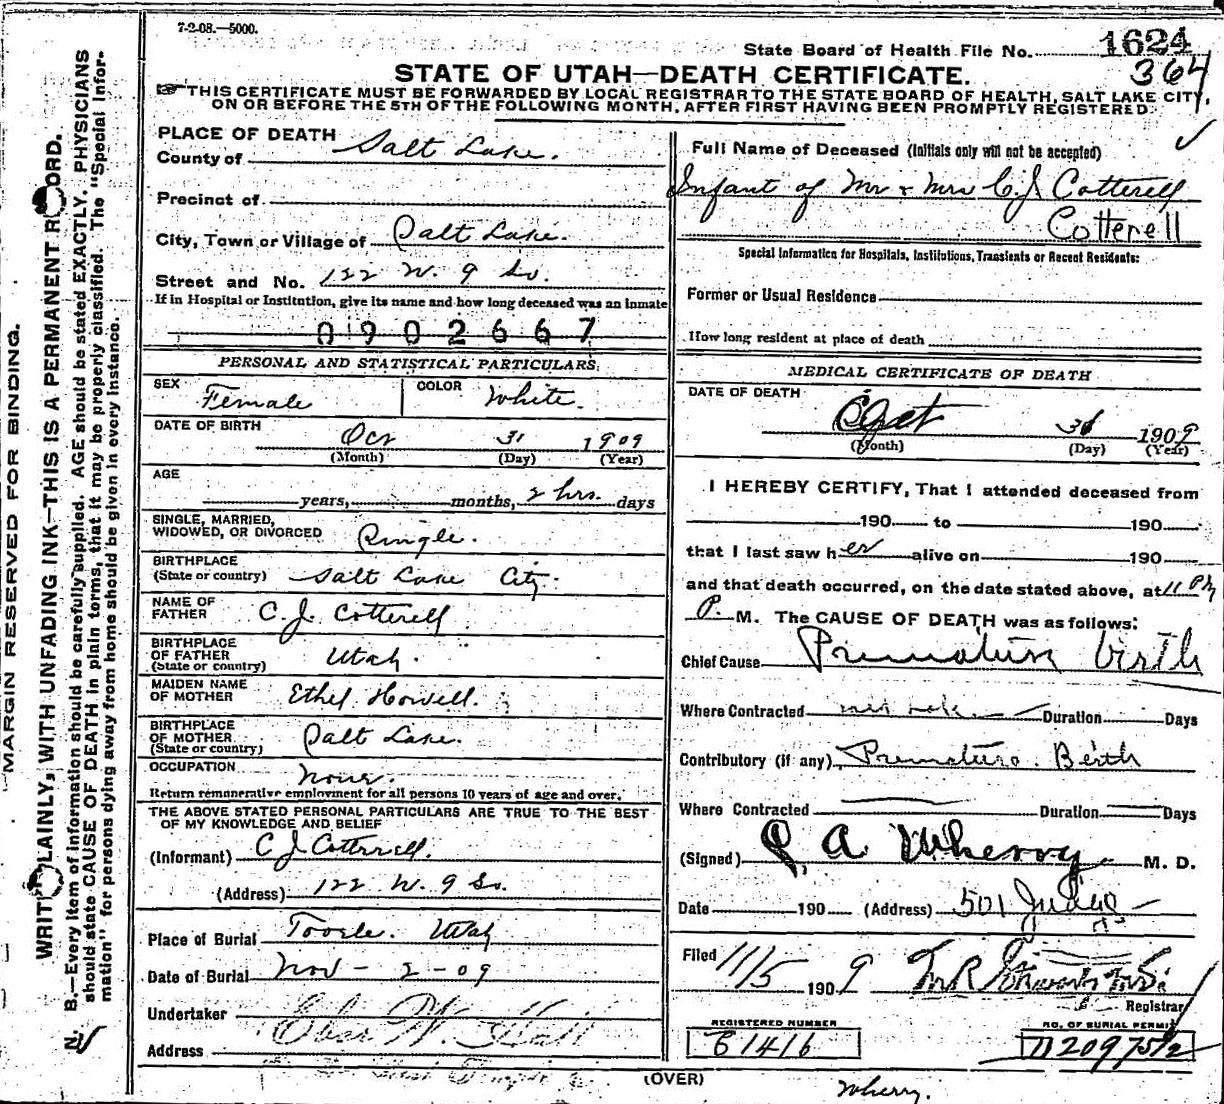 7-2-08.—5000.
State Board of Health File No. 1624
364
STATE OF UTAH—DEATH CERTIFICATE.
THIS CERTIFICATE MUST BE FORWARDED BY LOCAL REGISTRAR TO THE STATE BOARD OF HEALTH, SALT LAKE CITY,
ON OR BEFORE THE 5TH OF THE FOLLOWING MONTH, AFTER FIRST HAVING BEEN PROMPTLY REGISTERED.
MARGIN RESERVED FOR BINDING.
WRITE PLAINLY, WITH UNFADING INK—THIS IS A PERMANENT RECORD.
N. B.—Every item of information should be carefully supplied. AGE should be stated EXACTLY. PHYSICIANS
should state CAUSE OF DEATH in plain terms, that it may be properly classified. The "Special Infor-
mation" for persons dying away from home should be given in every instance.
PLACE OF DEATH
County of Salt Lake.
Precinct of
City, Town or Village of Salt Lake.
Street and No. 122 W. 9 So.
If in Hospital or Institution, give its name and how long deceased was an inmate
0902667
PERSONAL AND STATISTICAL PARTICULARS
SEX Female COLOR White.
DATE OF BIRTH Oct 31 1909
(Month) (Day) (Year)
AGE
years, months, 2 hrs. days
SINGLE, MARRIED,
WIDOWED, OR DIVORCED Single.
BIRTHPLACE
(State or country) Salt Lake City.
NAME OF
FATHER C. J. Cotterell
BIRTHPLACE
OF FATHER
(State or country) Utah.
MAIDEN NAME
OF MOTHER Ethel Howell.
BIRTHPLACE
OF MOTHER
(State or country) Salt Lake.
OCCUPATION None.
Return remunerative employment for all persons 10 years of age and over.
THE ABOVE STATED PERSONAL PARTICULARS ARE TRUE TO THE BEST
OF MY KNOWLEDGE AND BELIEF
(Informant) C J Cotterell.
(Address) 122 W. 9 So.
Place of Burial Tooele. Utah
Date of Burial Nov - 2 - 09
Undertaker Eber W. Hall
Address
Full Name of Deceased (Initials only will not be accepted)
Infant of Mr & Mrs C. J. Cotterell
Cotterell
Special Information for Hospitals, Institutions, Transients or Recent Residents:
Former or Usual Residence
How long resident at place of death
MEDICAL CERTIFICATE OF DEATH
DATE OF DEATH
Oct 31 1909
(Month) (Day) (Year)
I HEREBY CERTIFY, That I attended deceased from
190 to 190
that I last saw her alive on 190
and that death occurred, on the date stated above, at 11 PM
P. M. The CAUSE OF DEATH was as follows:
Chief Cause Premature birth
Where Contracted Duration Days
Contributory (if any) Premature Birth
Where Contracted Duration Days
(Signed) A Wherry M. D.
Date 190 (Address) 501 Judge
Filed 11/5 1909
Registrar
REGISTERED NUMBER NO. OF BURIAL PERMIT
E1416
(OVER)
Wherry.